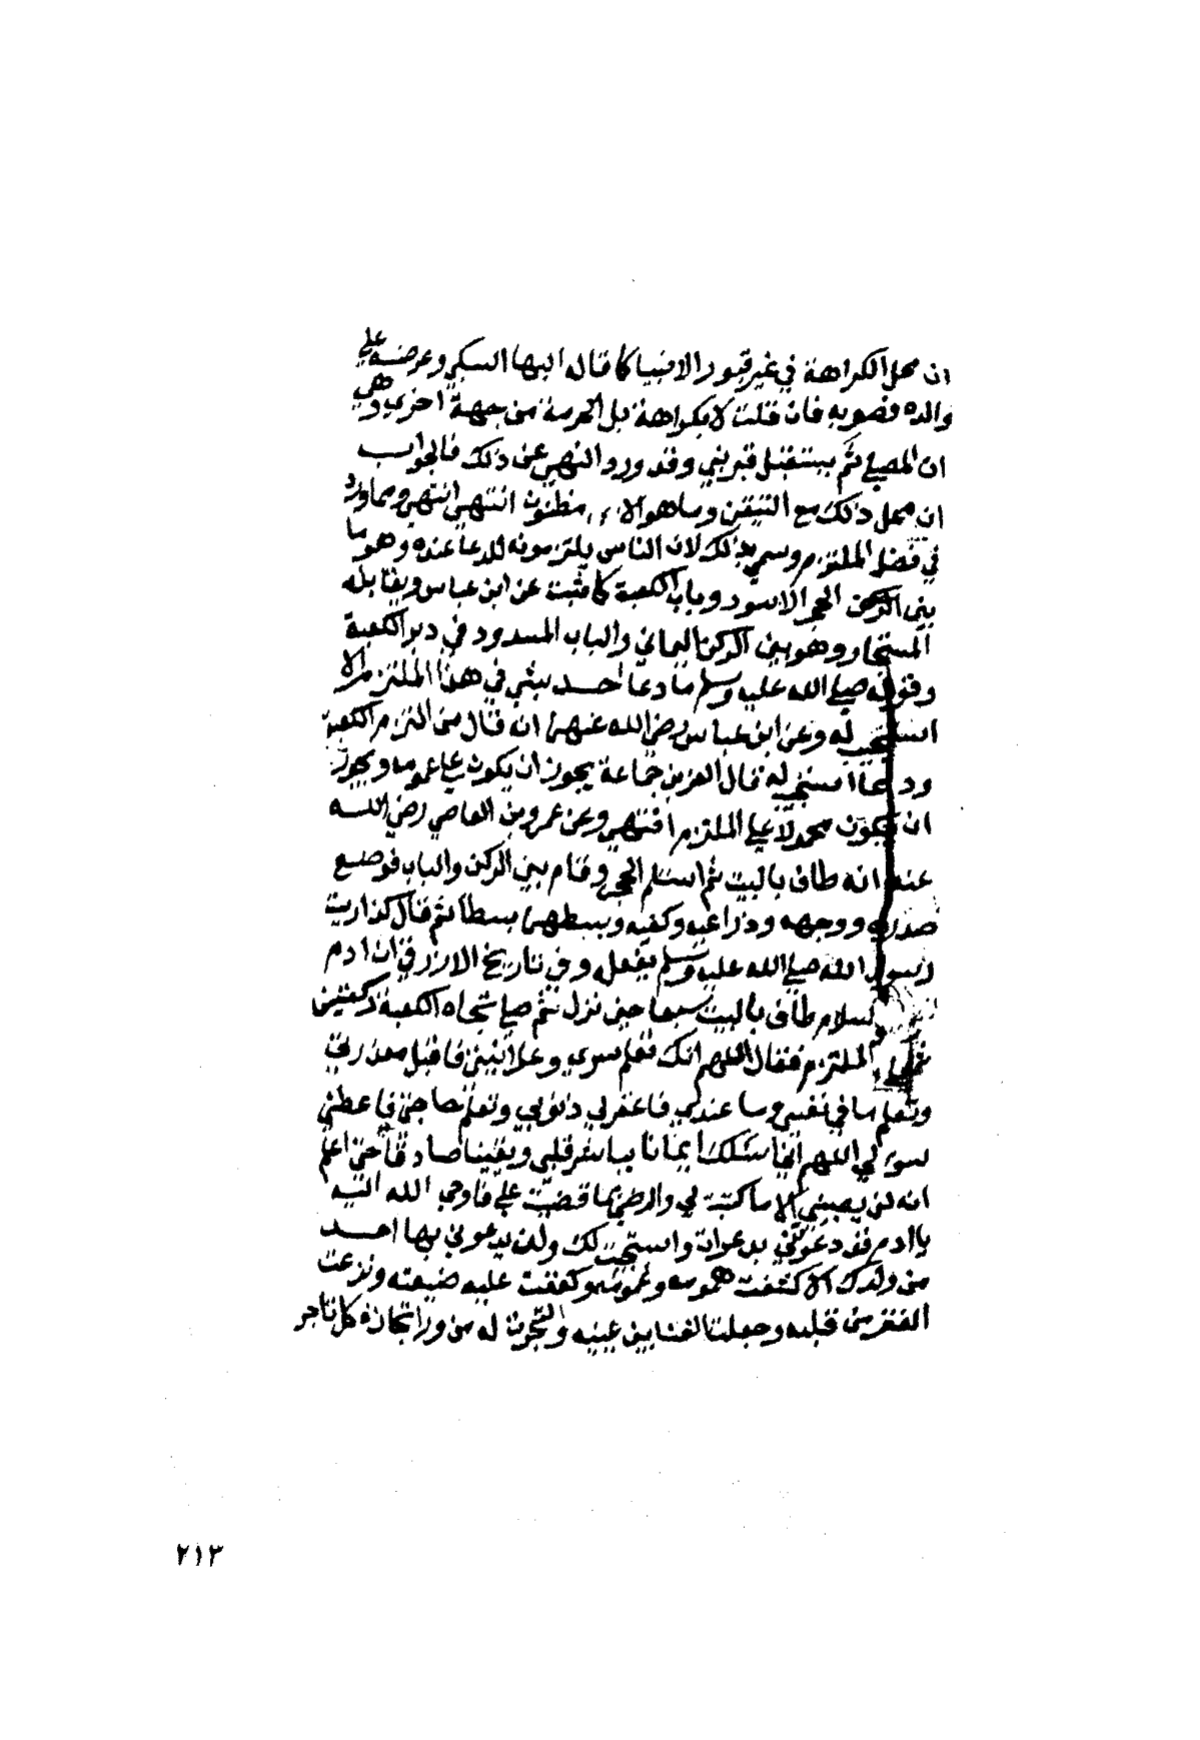 ان محل الكراهة في غير قبور الانبيا كما قاله البها السبكي وعرضه علي
والده فصوبه فان قلت لا بكراهة بل الحرمة من جهة اخري وهي
ان المصلي ثم يستقبل قبر نبي وقد ورد النهي عن ذلك فالجواب
ان محل ذلك مع التيقن وما هو الا مظنون انتهي انتهي ومما ورد
في فضل الملتزم وسمي بذلك لان الناس يلتزمونه للدعا عنده وهو ما
بين الركن الحجر الاسود وباب الكعبة كما ثبت عن ابن عباس ويقابله
المستجار وهو بين الركن اليماني والباب المسدود في دبر الكعبة
وقوله صلي الله عليه وسلم ما دعا احد بشي في هذا الملتزم الا
استجيب له وعن ابن عباس رضي الله عنهما ان قال من التزم الكعبة
ودعا استجيب له قال العز بن جماعة يجوز ان يكون علي عمومه ويجوز
ان يكون محمولا علي الملتزم انتهي وعن عمرو بن العاصي رضي الله
عنه انه طاف بالبيت ثم استلم الحجر وقام بين الركن والباب فوضع
صدره ووجهه وذراعيه وكفيه وبسطهما بسطا ثم قال كذا رايت
رسول الله صلي الله عليه وسلم يفعل وفي تاريخ الازرقي ان ادم
السلام طاف بالبيت سبعا حين نزل ثم صلي تجاه الكعبة ركعتين
ثم الملتزم فقال اللهم انك تعلم سري وعلانيتي فاقبل معذرتي
وتعلم ما في نفسي وما عندي فاغفر لي ذنوبي وتعلم حاجتي فاعطني
سولي اللهم اني اسئلك ايمانا يباشر قلبي ويقينا صادقا حتي اعلم
انه لن يصيبني الا ما كتبت لي والرضي بما قضيت علي فاوحي الله اليه
يا ادم قد دعوتني بدعوات واستجبت لك ولن يدعوني بها احد
من ولدك الا كشفت همومه وغمومه وكففت عليه ضيعته ونزعت
الفقر من قلبه وجعلت الغنا بين عينيه واتجرت له من ورا تجارة كل تاجر
٢١٣